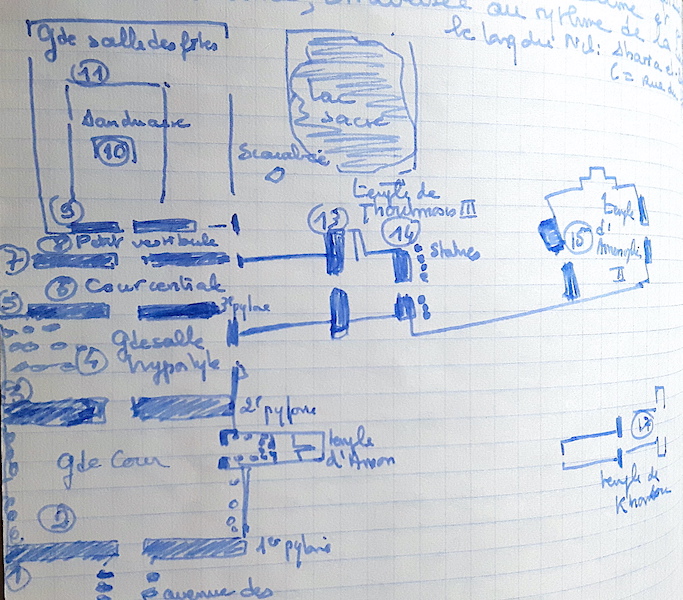 au rythme de la
le long du Nil:
Gde salle des fêtes
11
Lac
sacré
Sanctuaire
10
Scarabée
temple de
Thoutmosis III
9
13
14
temple
d'
II
15
8 Petit vestibule
Statues
7
6 Cour centrale
5
3e pylone
Gde salle
4
hypostyle
3
2e pylone
17
temple
d'Amon
Gde Cour
temple de
Khonsou
2
1er pylone
1
avenue des